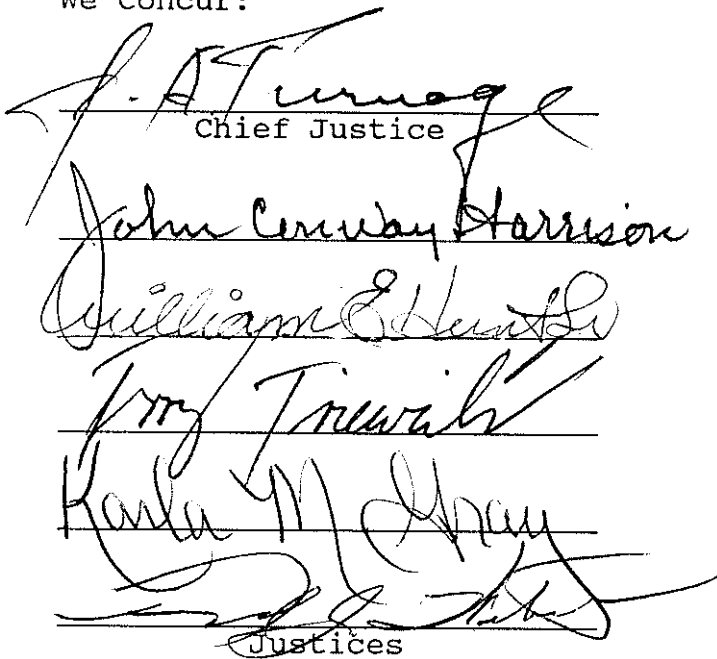 We Concur:
J. A. Turnage
Chief Justice
John Conway Harrison
William E Hunt Sr
Terry Trieweiler
Karla M Gray
Justices